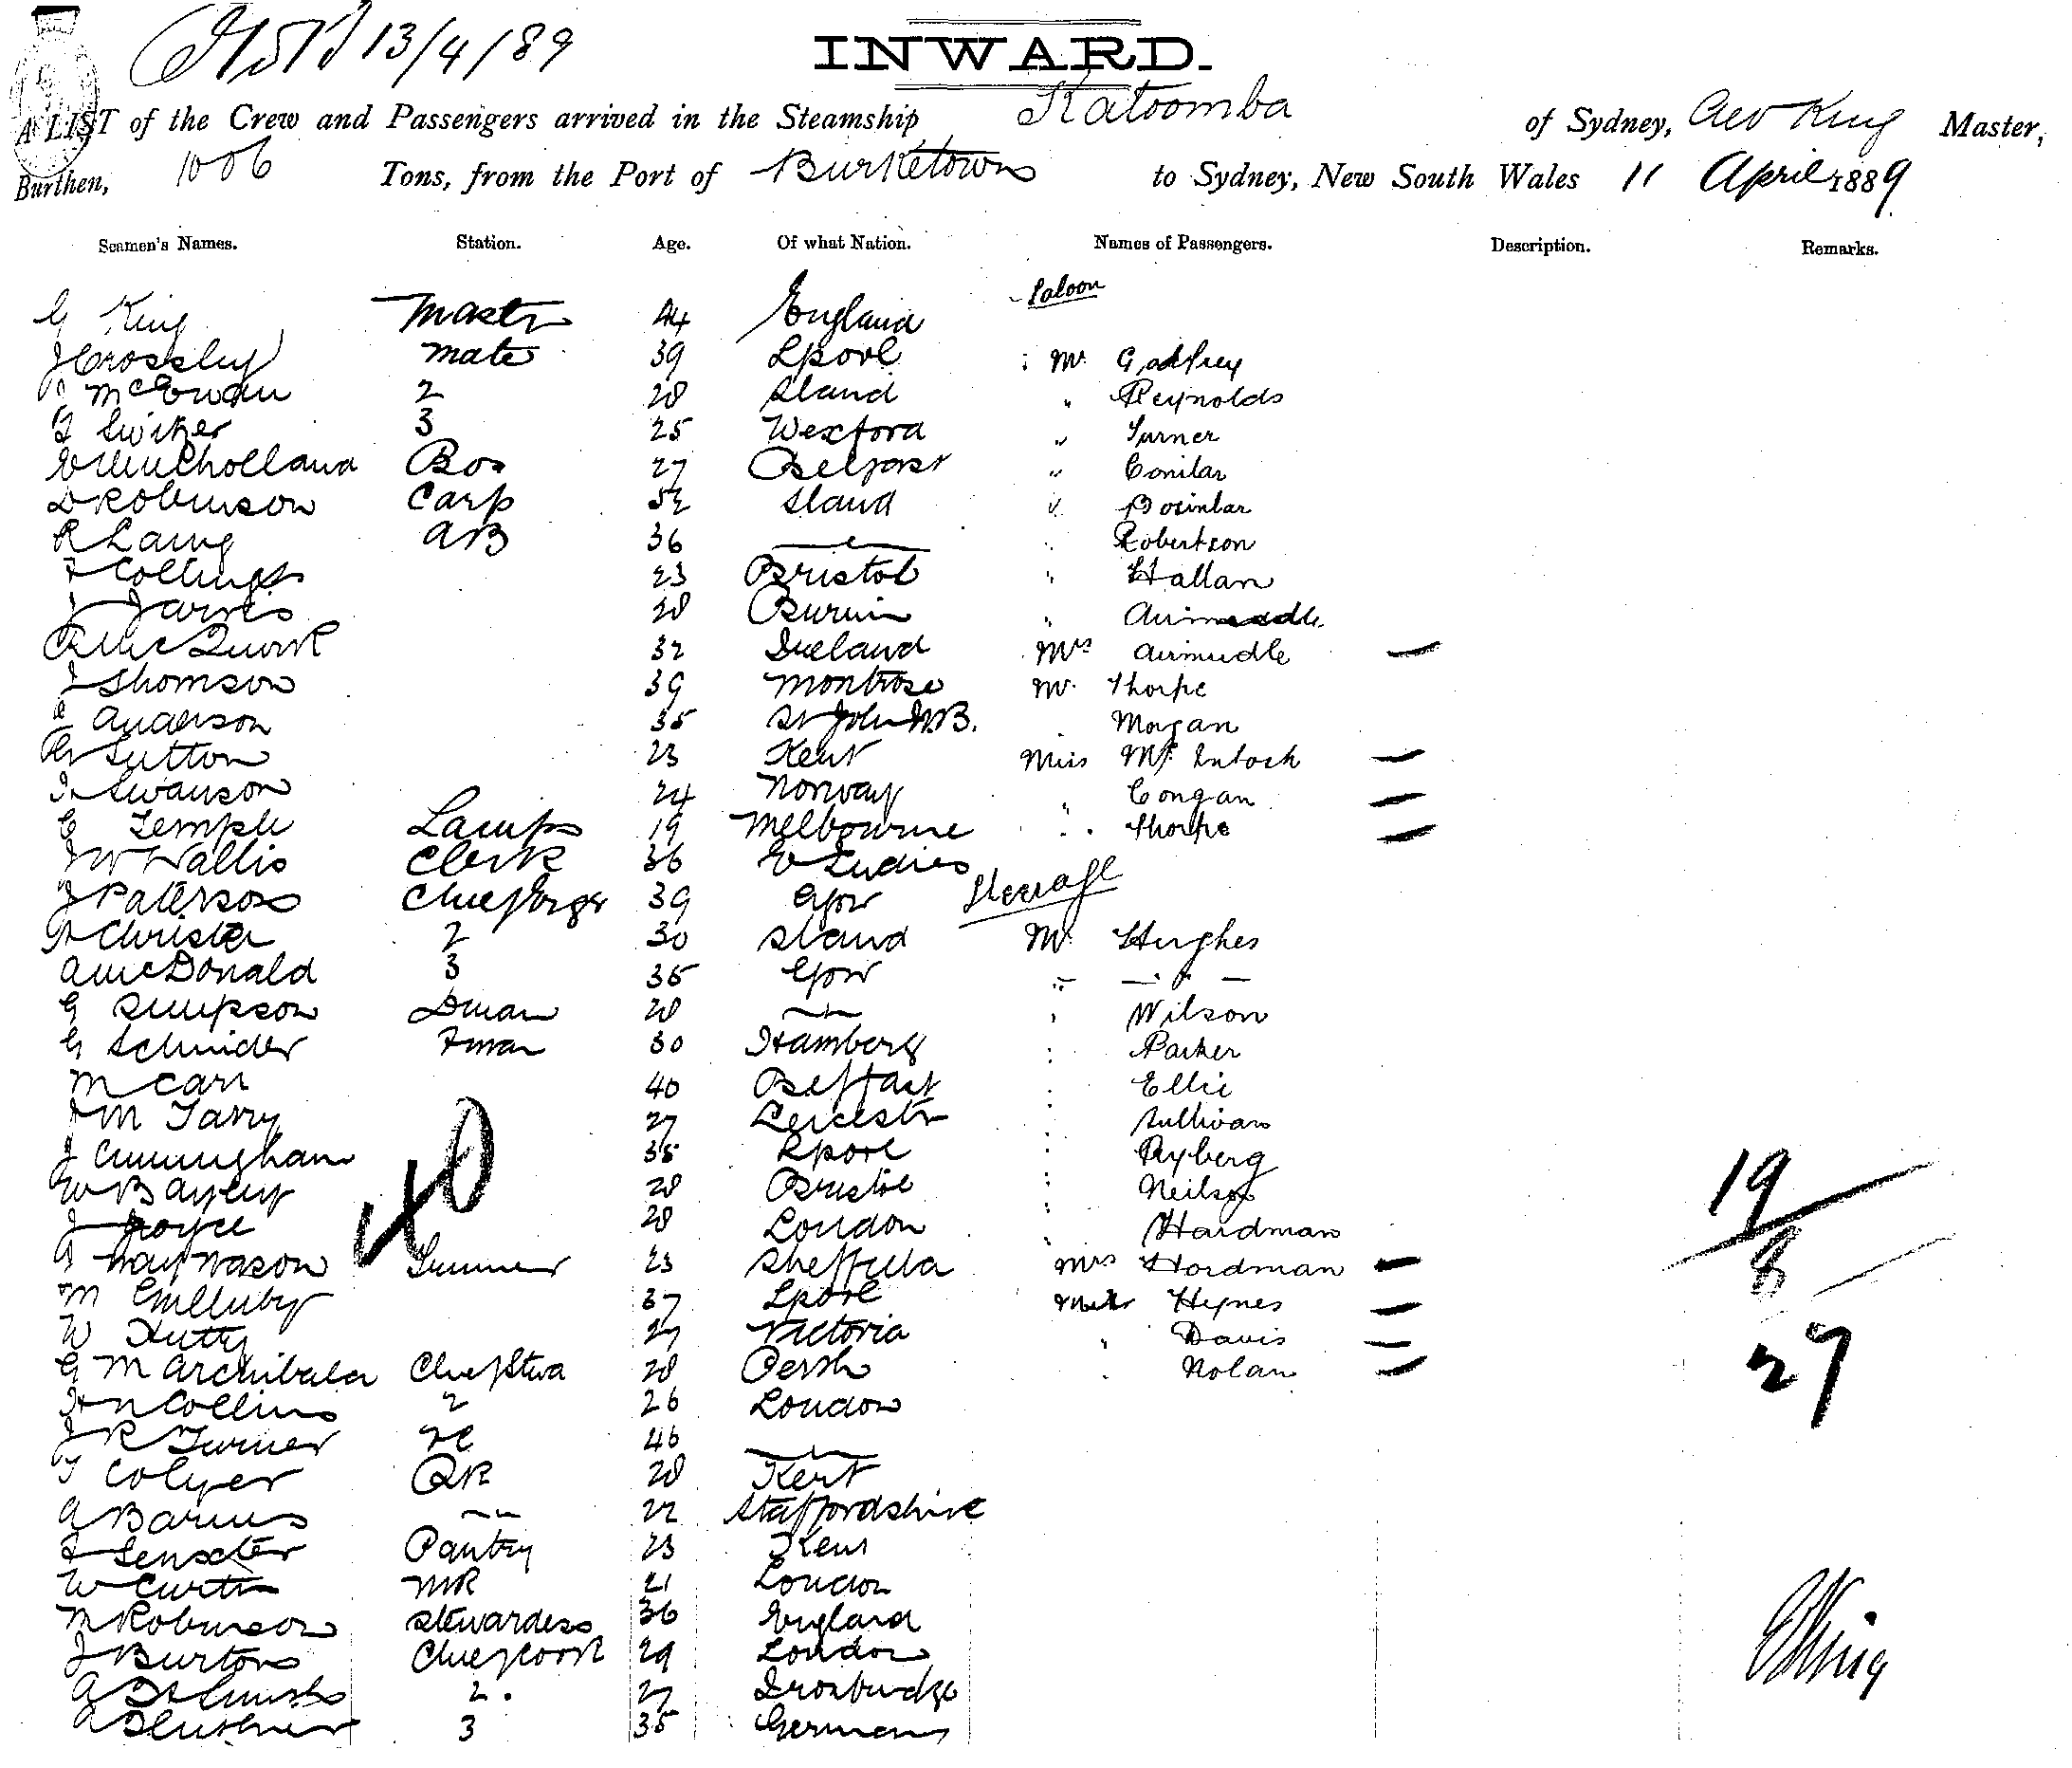 13/4/89
INWARD.
A LIST of the Crew and Passengers arrived in the Steamship Katoomba of Sydney, Geo King Master,
Burthen, 1006 Tons, from the Port of Burketown to Sydney, New South Wales 11 April 1889
Seamen's Names. Station. Age. Of what Nation. Names of Passengers. Description. Remarks.
Saloon
G King Master 44 England
J Crossley Mate 39 Lpool Mr Godfrey
McEwan 2 28 Sland " Reynolds
3 25 Wexford " Turner
Mulholland Bos 27 Belfast "
D Robinson Carp 52 Sland "
R Laing AB 36 Robertson
Collings 23 Bristol " Hallan
J Jarvis 28 "
McQuirk 32 Ireland Mrs
J Thomson 39 Montrose Mr Thorpe
Anderson 35 St John N.B. Morgan
Sutton 23 Kent Miss McIntosh
Swanson 24 Norway " Congan
G Temple Lamps 19 Melbourne " Thorpe
J W Wallis Clerk 36 W Indies
Steerage
J Paterson Chief Engr 39 Gow
Christie 2 30 Sland Mr Hughes
A McDonald 3 35 Gow " — " —
G Simpson Dman 28 Wilson
G Schnider Fman 30 Hamberg Parker
M Carr 40 Belfast Ellie
J M Tarry 27 Leicestr Sullivan
J Cunningham 35 Lpool Ryberg
W Bayley 28 Bristol Neilson
J Royce 28 London Hardman
19
Trimmer 23 Sheffield Mrs Hardman
8
40
M 37 Lpool Hynes
W Hutty 27 Victoria " Davis
27
G M Archibald Chief Stwd 28 Perth Nolan
H N Collins 2 26 London
J R Turner 46
T Colyer 28 Kent
A Barnes 22 Staffordshire
Pantry 23 Kent
W Curtis MR 21 London
M Robinson Stewardess 36 England
J Burton Chief Cook 29 London
A 2 27 Ironbridge
A 3 35 Germany
King